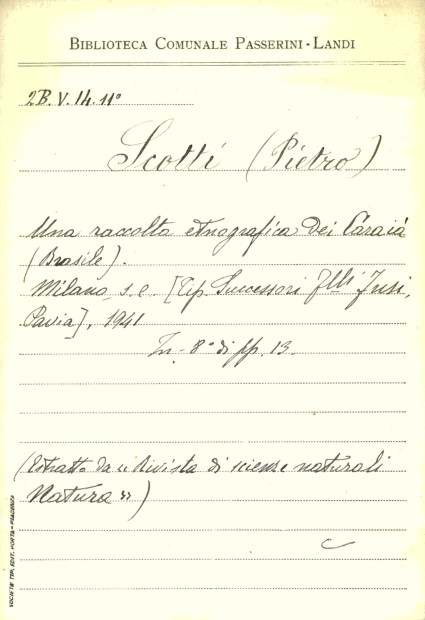 BIBLIOTECA COMUNALE PASSERINI-LANDI
2B.V.14.11º
Scotti (Pietro)
Una raccolta etnografica dei Caraià
(Brasile).
Milano, s.e. [Tip. Successori Flli Fusi,
Pavia], 1941
In-8º di pp. 13.
(Estratto da "Rivista di scienze naturali
Natura")
SOCIETÀ TIP. EDIT. PORTA - PIACENZA